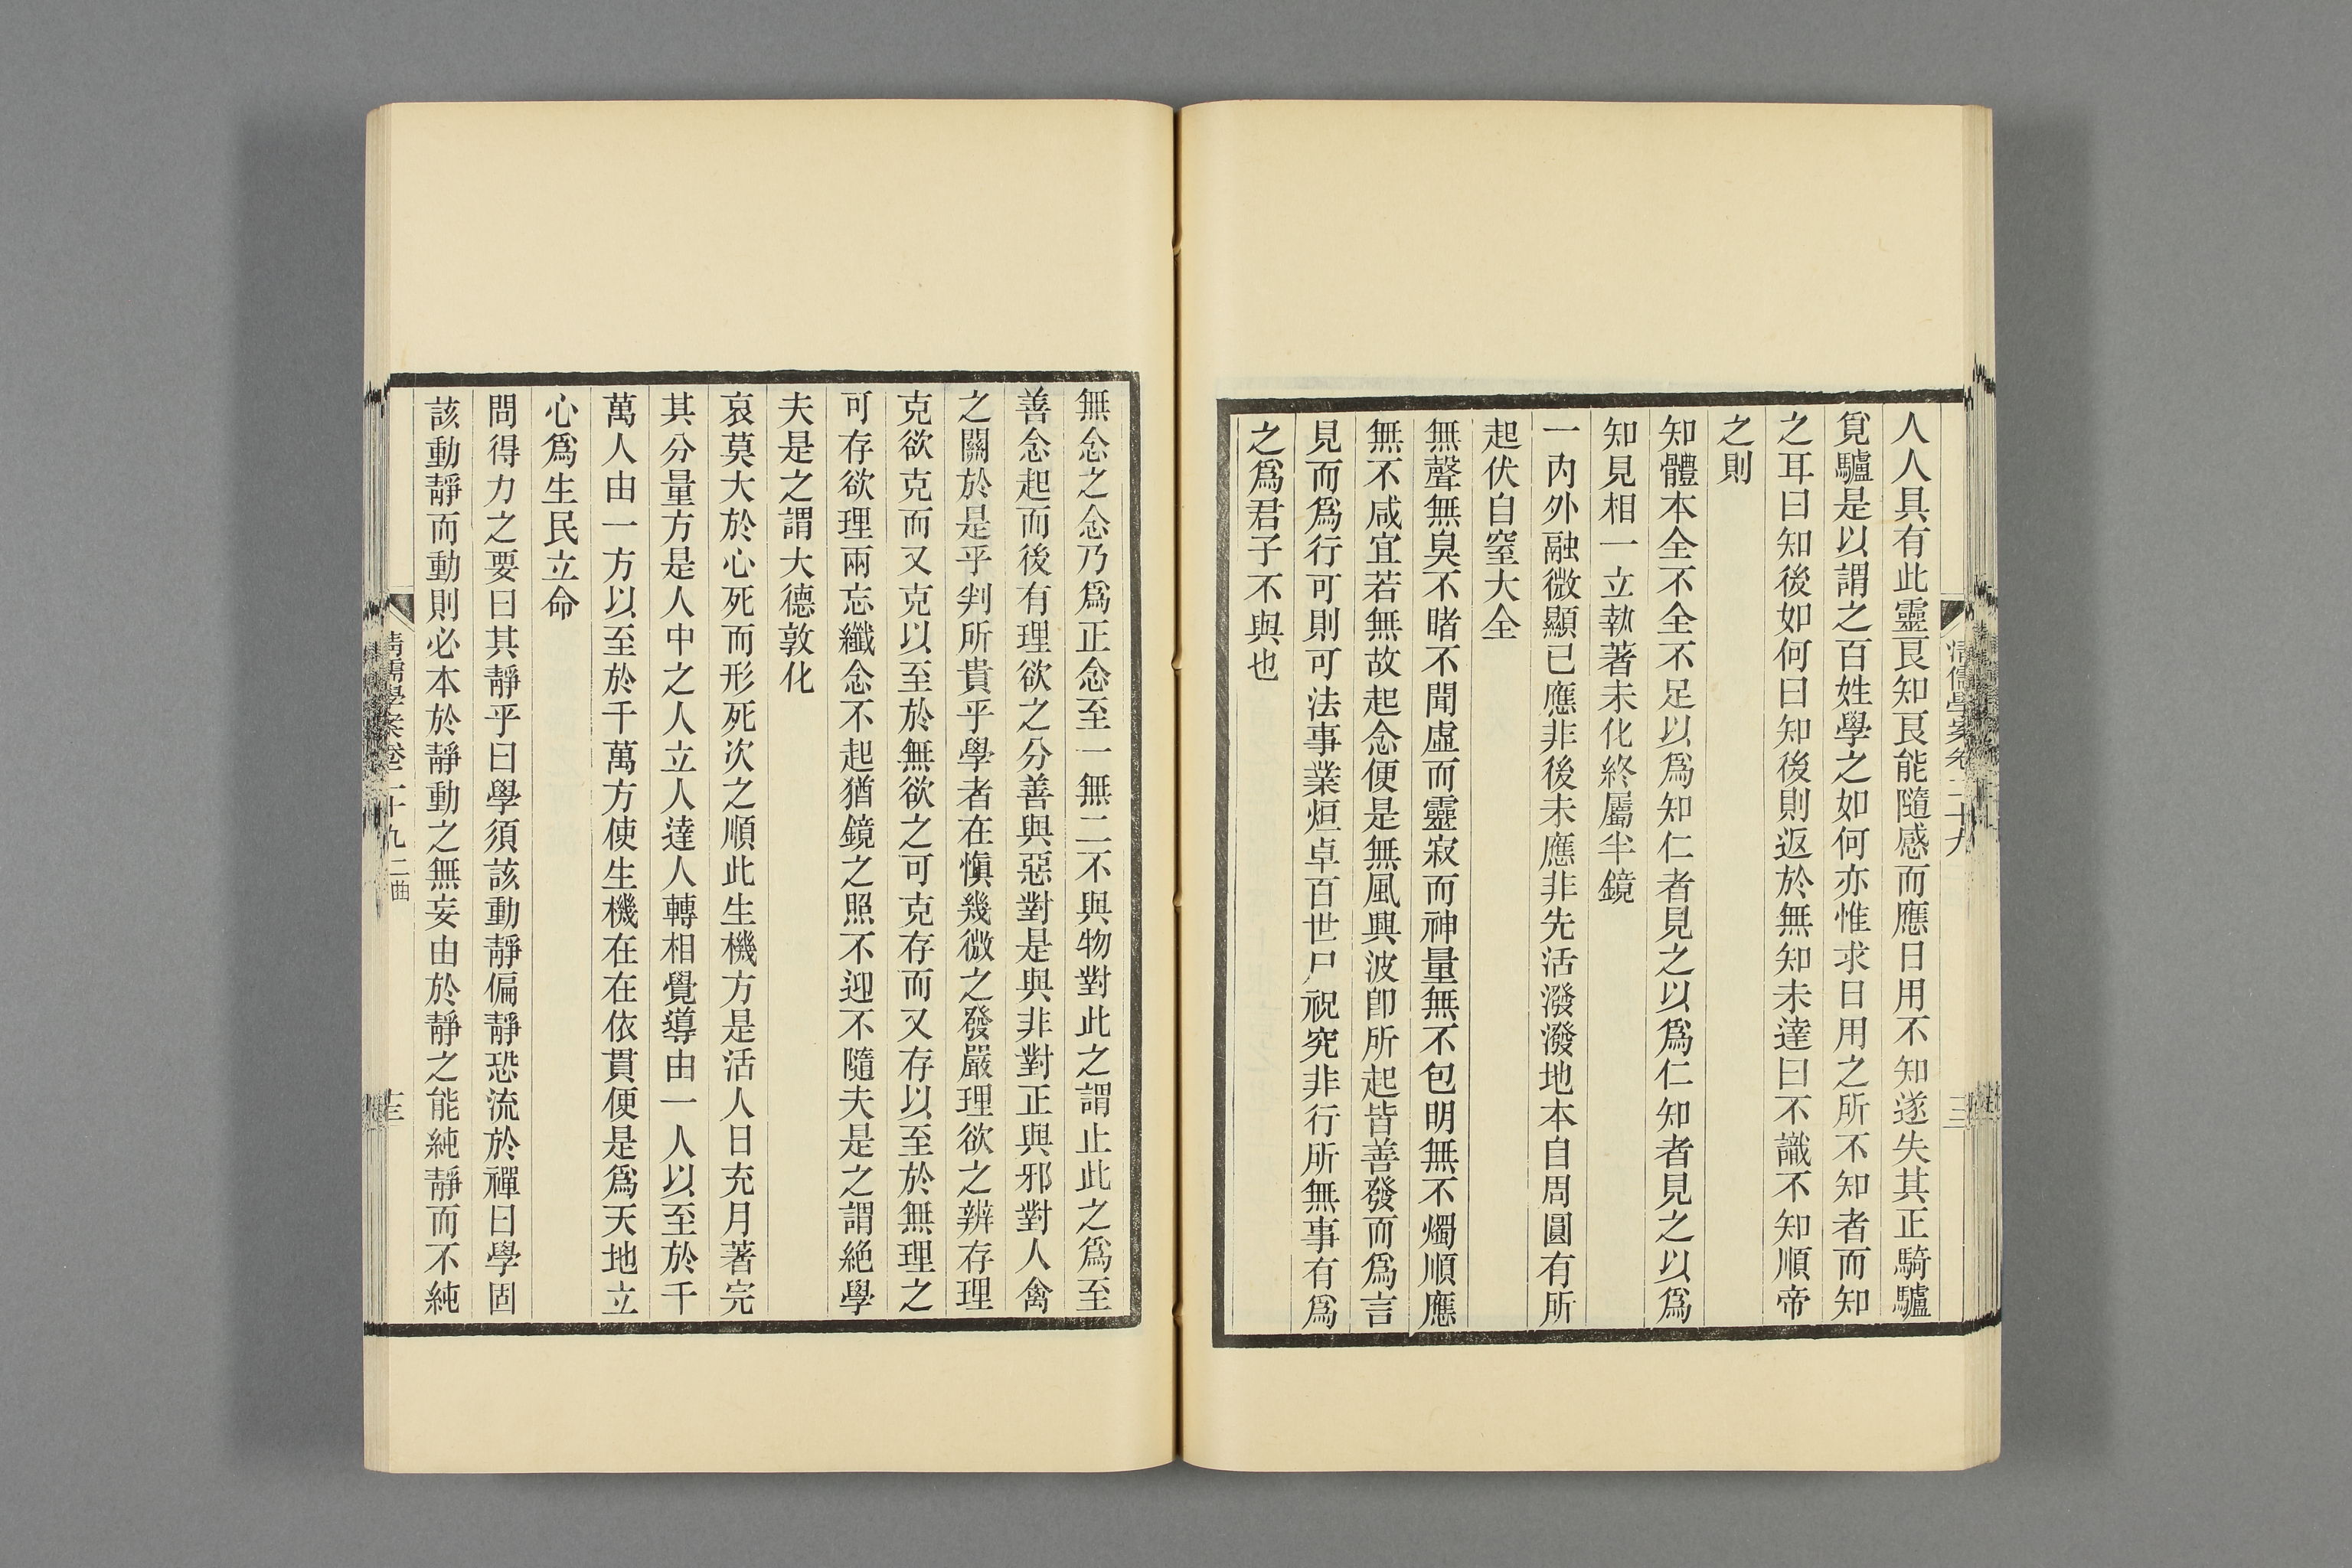 清儒學案卷二十九
人人具有此靈良知良能隨感而應日用不知遂失其正騎驢
覓驢是以謂之百姓學之如何亦惟求日用之所不知者而知
之耳曰知後如何曰知後則返於無知未達曰不識不知順帝
之則
知體本全不全不足以爲知仁者見之以爲仁知者見之以爲
知見相一立執著未化終屬半鏡
一內外融微顯已應非後未應非先活潑潑地本自周圓有所
起伏自窒大全
無聲無臭不睹不聞虛而靈寂而神量無不包明無不燭順應
無不咸宜若無故起念便是無風興波卽所起皆善發而爲言
見而爲行可則可法事業烜卓百世尸祝究非行所無事有爲
之爲君子不與也
無念之念乃爲正念至一無二不與物對此之謂止此之爲至
善念起而後有理欲之分善與惡對是與非對正與邪對人禽
之關於是乎判所貴乎學者在愼幾微之發嚴理欲之辨存理
克欲克而又克以至於無欲之可克存而又存以至於無理之
可存欲理兩忘纖念不起猶鏡之照不迎不隨夫是之謂絶學
夫是之謂大德敦化
哀莫大於心死而形死次之順此生機方是活人日充月著完
其分量方是人中之人立人達人轉相覺導由一人以至於千
萬人由一方以至於千萬方使生機在在依貫便是爲天地立
心爲生民立命
問得力之要曰其靜乎曰學須該動靜偏靜恐流於禪曰學固
該動靜而動則必本於靜動之無妄由於靜之能純靜而不純
清儒學案卷二十九 二曲